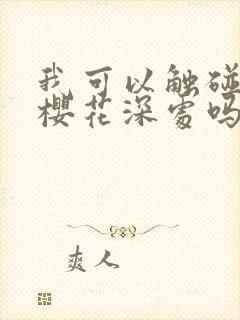 我可以触碰
樱花深处吗
爽人